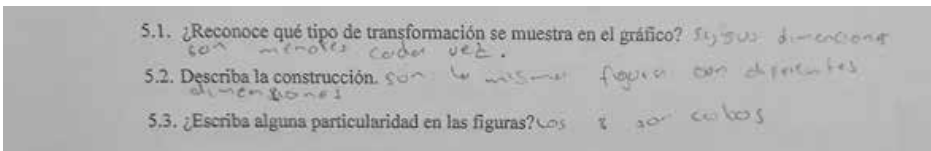 5.1. ¿Reconoce qué tipo de transformación se muestra en el gráfico? Si, sus dimenciones
son menores cada vez.
5.2. Describa la construcción. son la misma figura con diferentes
dimensiones
5.3. ¿Escriba alguna particularidad en las figuras? Los 8 son cubos